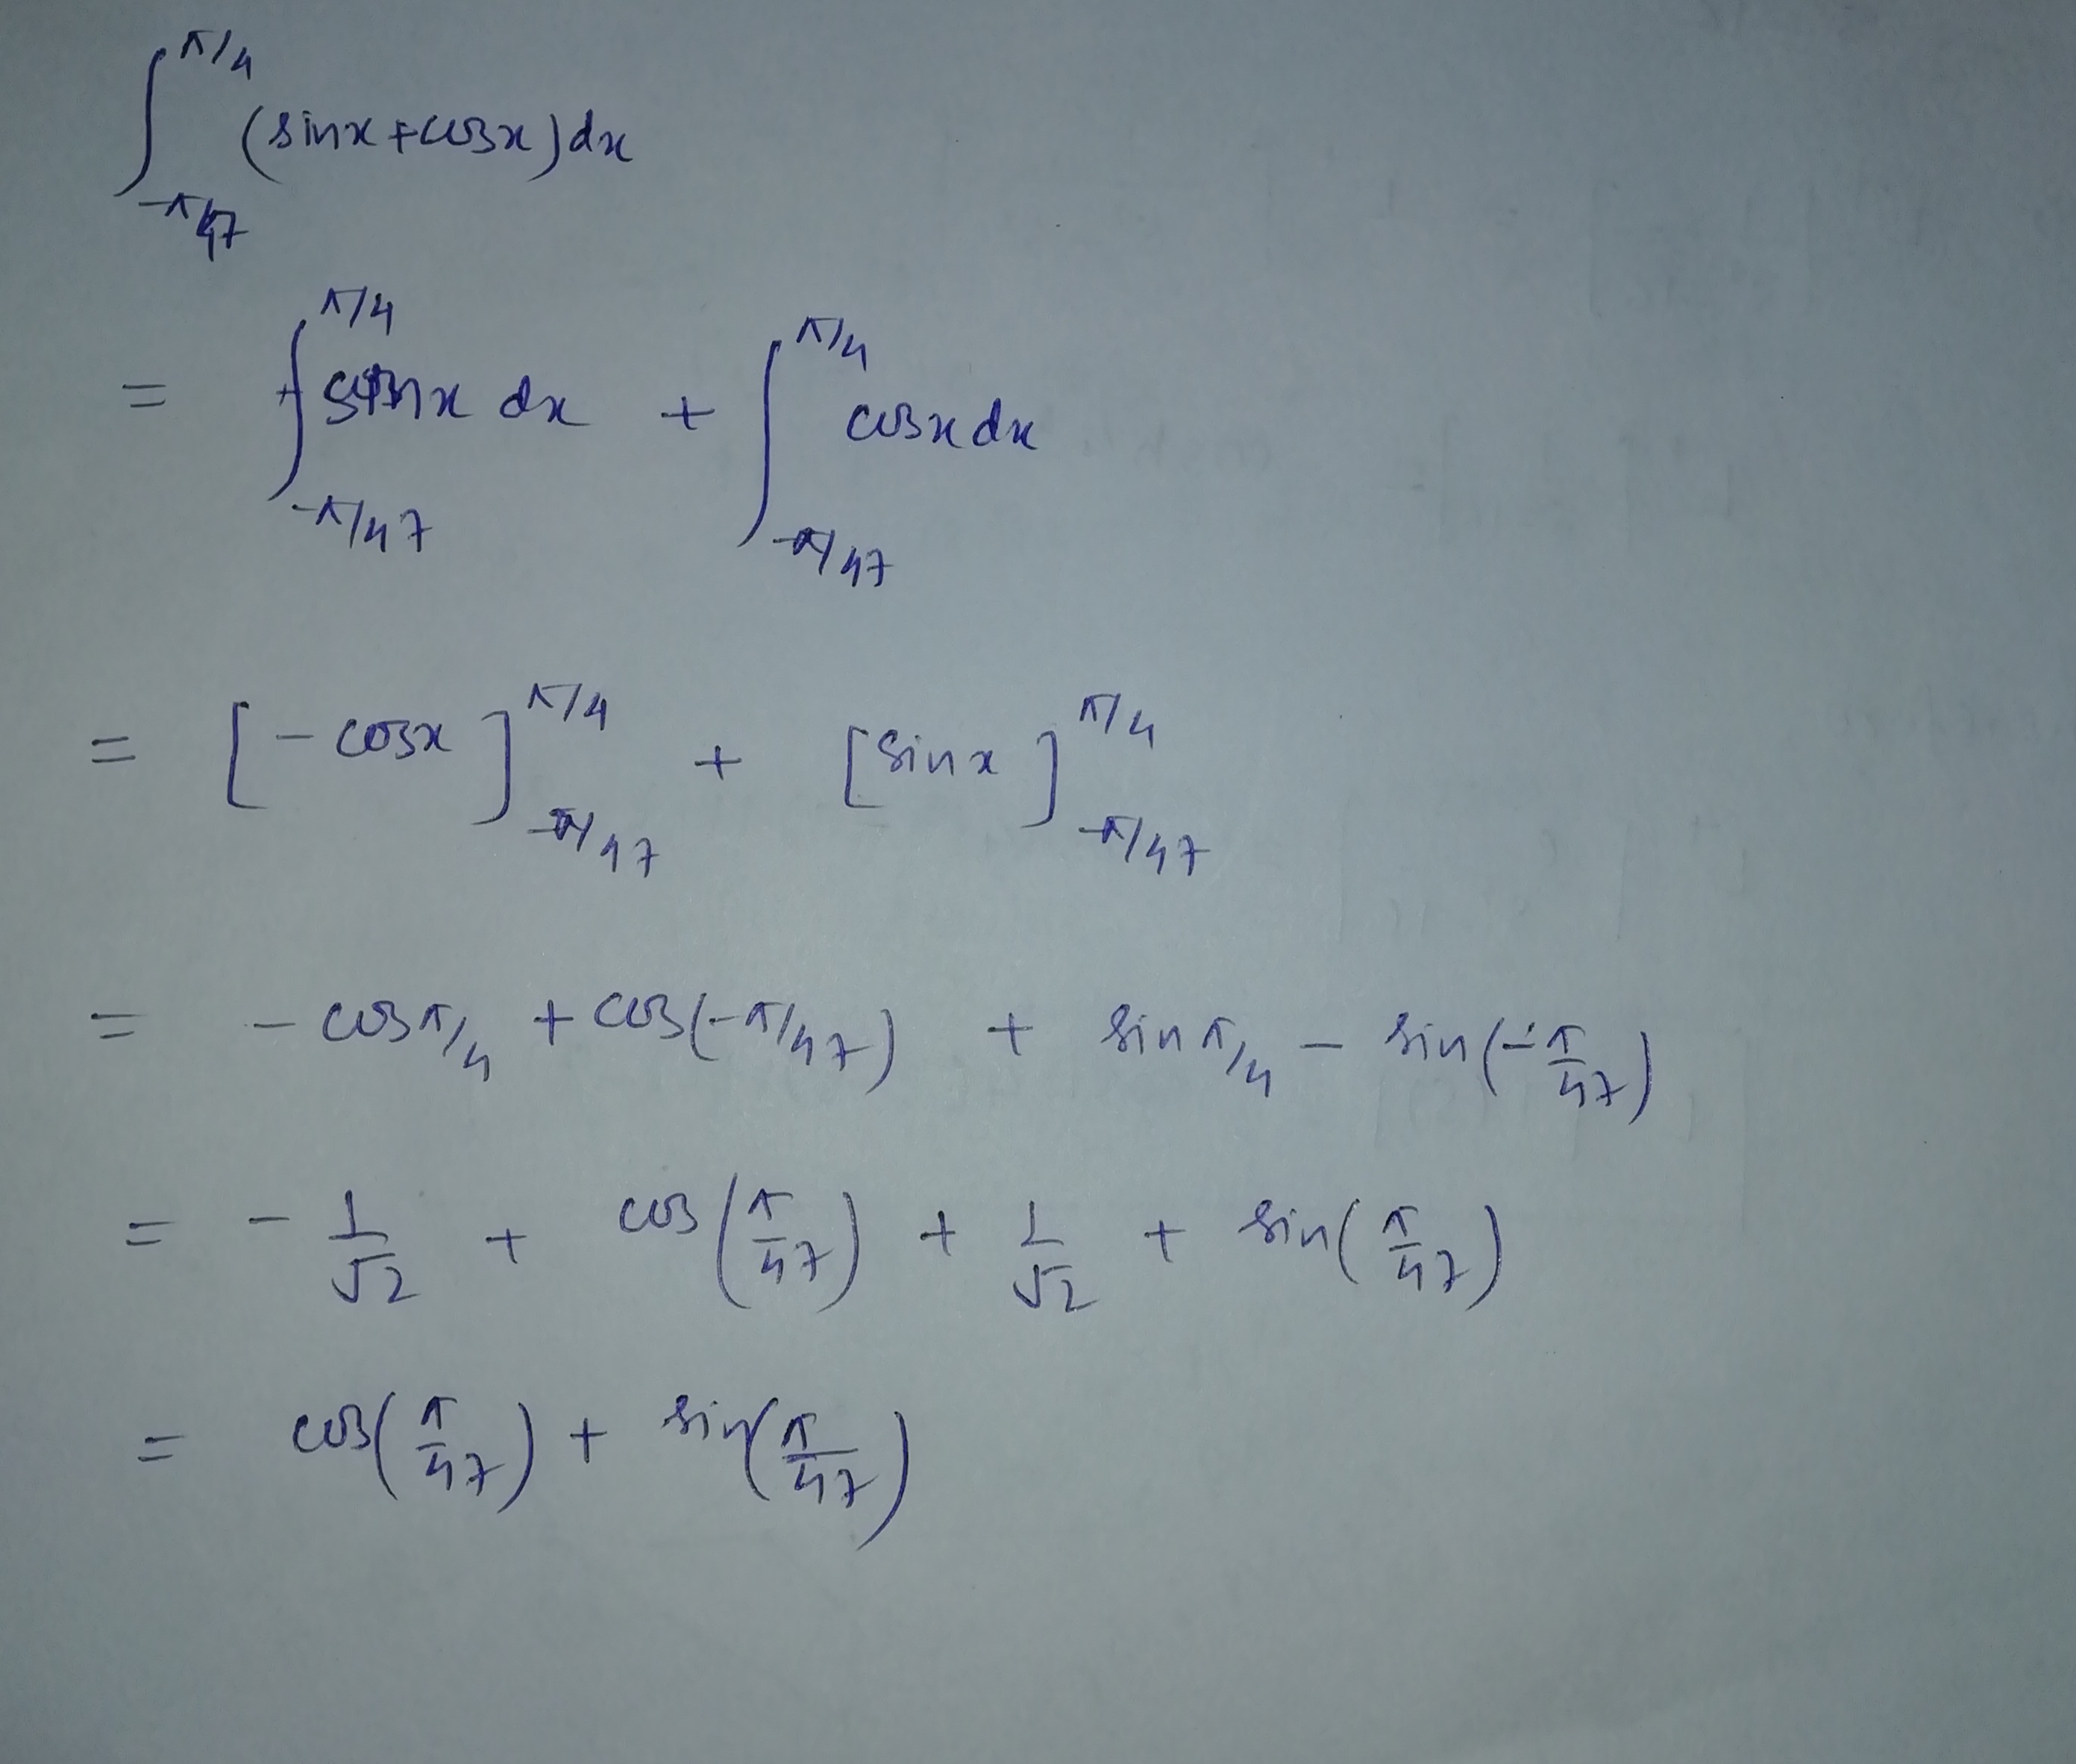 ∫_{-π/47}^{π/4} (sinx+cosx)dx
= ∫_{-π/47}^{π/4} sinx dx + ∫_{-π/47}^{π/4} cosx dx
= [-cosx]_{-π/47}^{π/4} + [sinx]_{-π/47}^{π/4}
= - cosπ/4 + cos(-π/47) + sinπ/4 - sin(-π/47)
= - 1/√2 + cos(π/47) + 1/√2 + sin(π/47)
= cos(π/47) + sin(π/47)